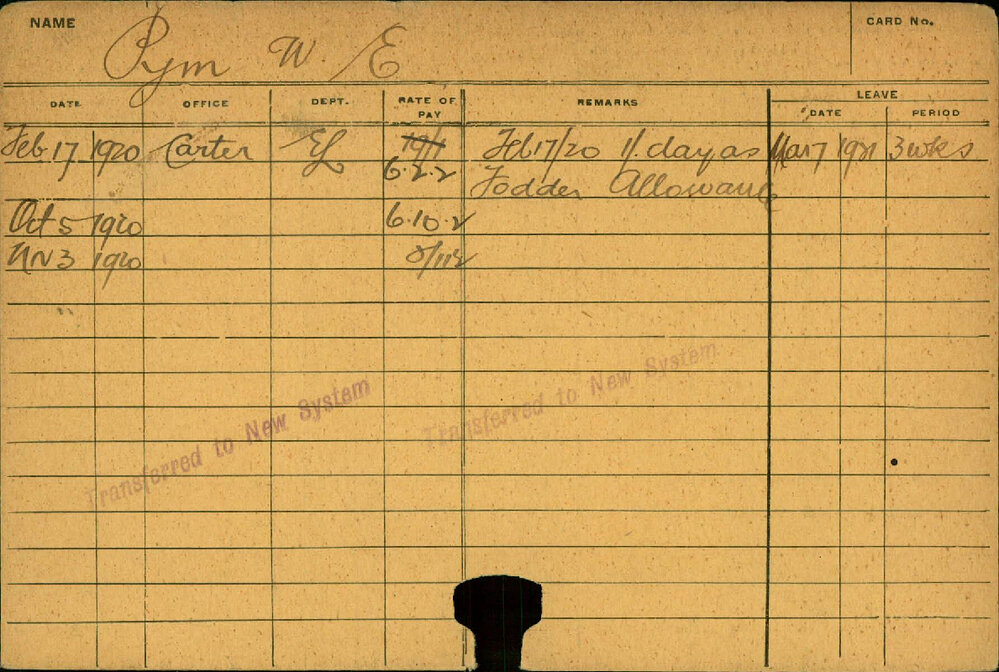 NAME
CARD No.
Pym W. E
DATE OFFICE DEPT. RATE OF PAY REMARKS LEAVE
DATE PERIOD
Feb 17 1920 Carter EL 19/1 Feb 17/20 1/. day as Mar 7 1921 3 wks
6.2.2 Fodder Allowance
Oct 5 1920 6.10.2
Nov 3 1920
Transferred to New System
Transferred to New System